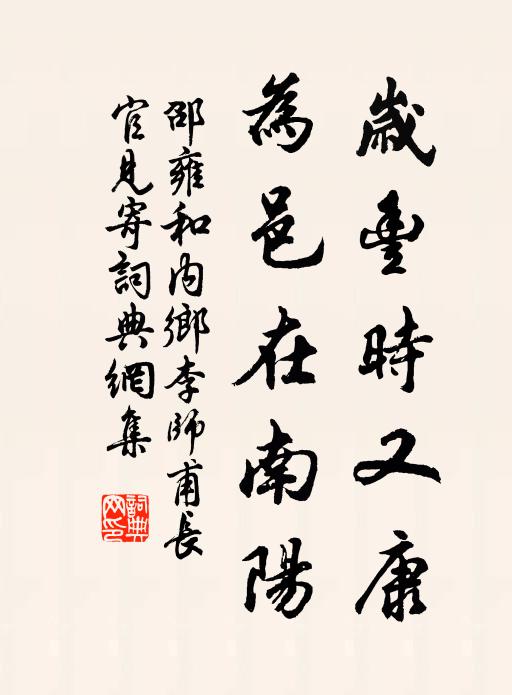 歲豐時又康
為邑在南陽
邵雍和內鄉李師甫長
官見寄詞典網集
詞典
网印